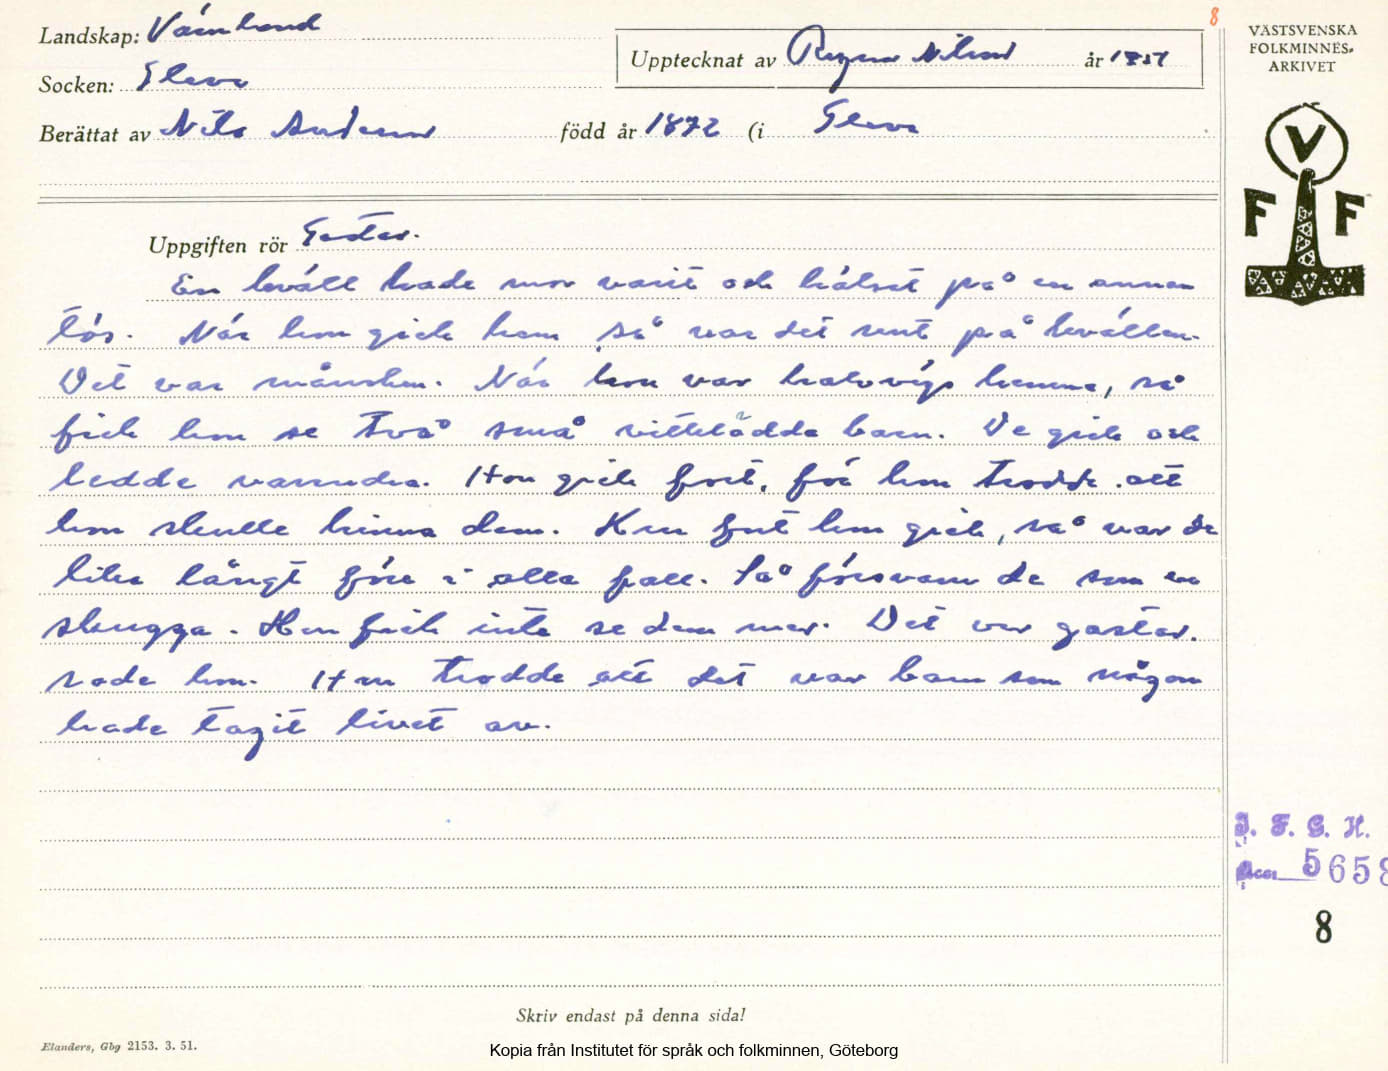 8
Landskap: Värmland
VÄSTSVENSKA
FOLKMINNES-
ARKIVET
Upptecknat av Ragnar Nilsson år 1951
Socken: Gleva
Berättat av Nils Andersson född år 1872 (i Gleva
V
F F
Uppgiften rör Gastar.
En kväll hade mor varit och hälsat på en annan
tös. När hon gick hem så var det sent på kvällen.
Det var månsken. När hon var halvvägs hemma, så
fick hon se två små vitklädda barn. De gick och
ledde varandra. Hon gick fort, för hon trodde att
hon skulle hinna dem. Hur fort hon gick, så var de
lika långt före i alla fall. Så försvann de som en
skugga. Hon fick inte se dem mer. Det var gastar.
sade hon. Hon trodde att det var barn som någon
hade tagit livet av.
I. F. G. H.
Acc. 5658
8
Skriv endast på denna sida!
Elanders, Gbg 2153. 3. 51.
Kopia från Institutet för språk och folkminnen, Göteborg